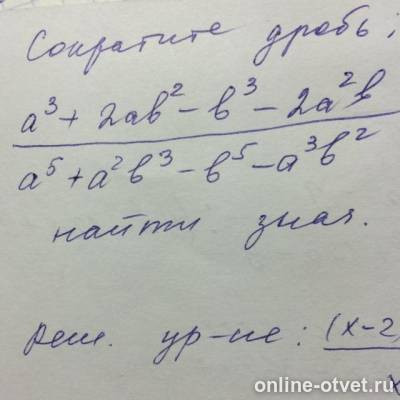 Сократите дробь;
a³ + 2ab² - b³ - 2a²b
a⁵ + a²b³ - b⁵ - a³b²
найти знач.
Реш. ур-ие: (x-2)
x
online-otvet.ru